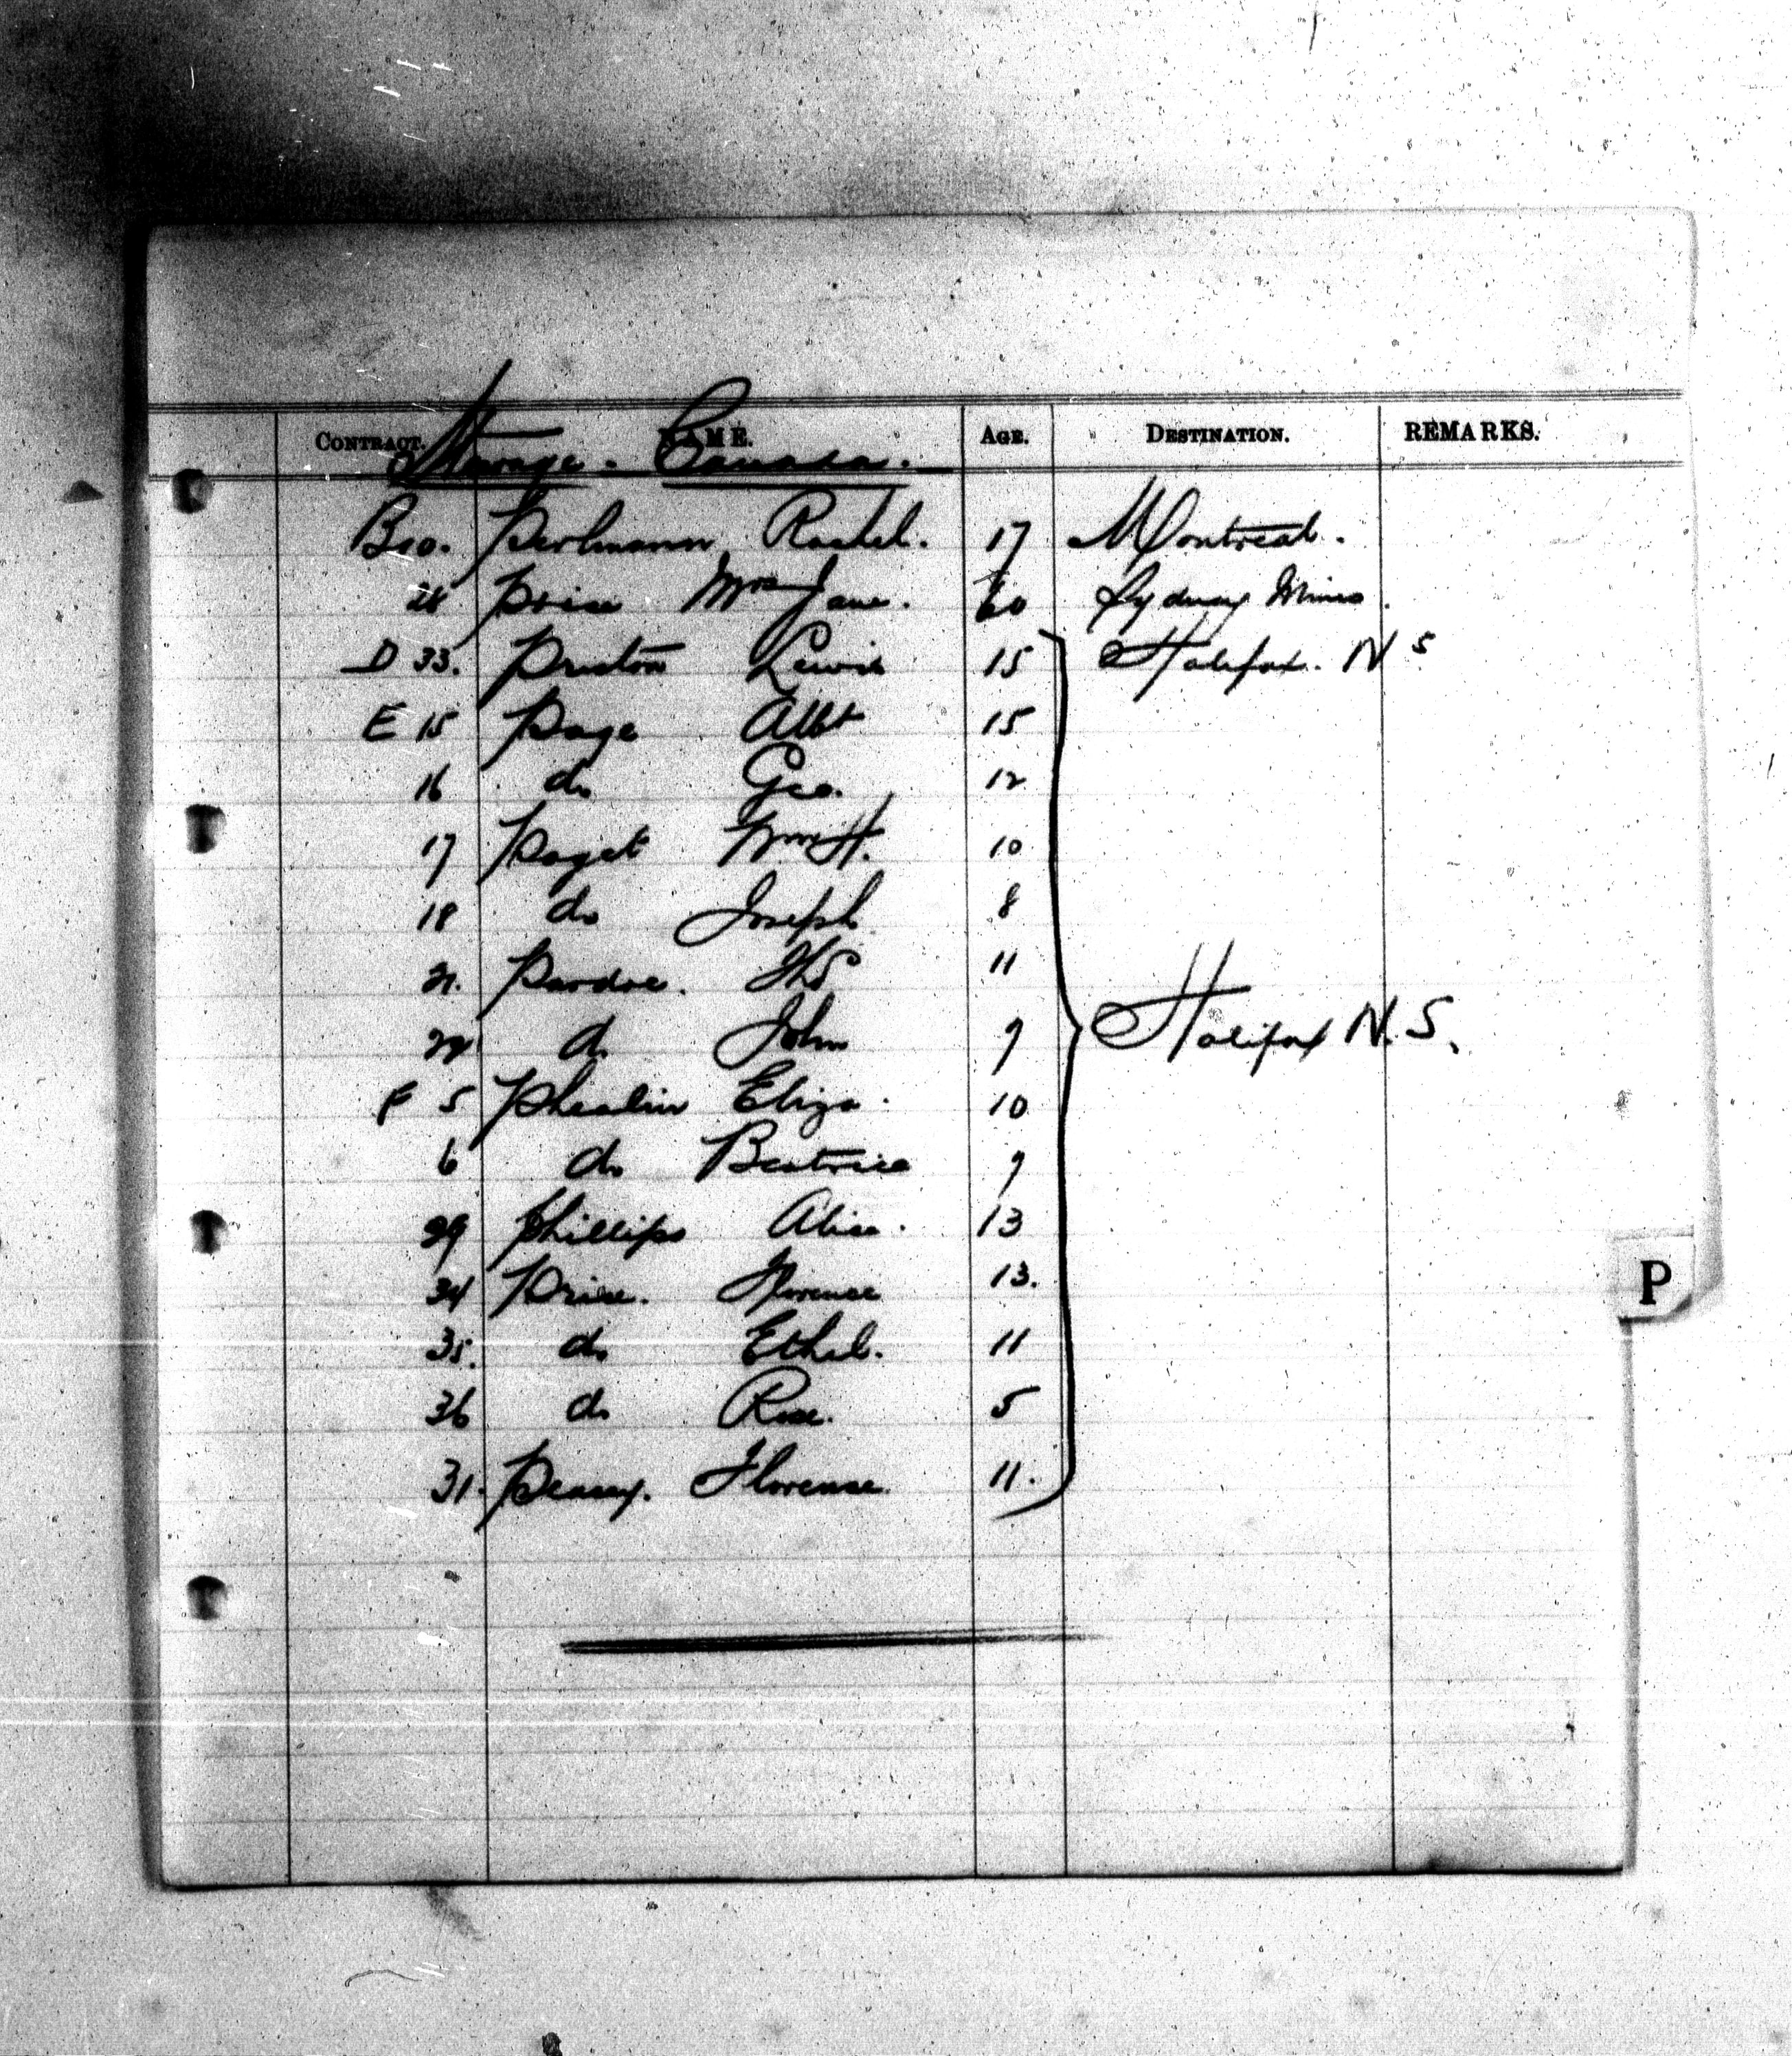 CONTRACT. NAME. AGE. DESTINATION. REMARKS.
Steerage - Canada.
B 10. Perlmann Rachel. 17 Montreal.
28 Price Mrs Jane. 60 Sydney Mines.
D 33. Preston Lewis 15 Halifax. N S
E 15 Page Albt 15
16 do Geo. 12
17 Paget Wm H. 10
18 do Joseph 8
21. Pardoe. Thos 11
22 do John 9 Halifax N.S.
F 5 Phealin Eliza. 10
6 do Beatrice 9
29 Phillips Alice. 13
34 Price. Florence 13.
35. do Ethel. 11
36 do Rose. 5
31. Peasey. Florence. 11.
P